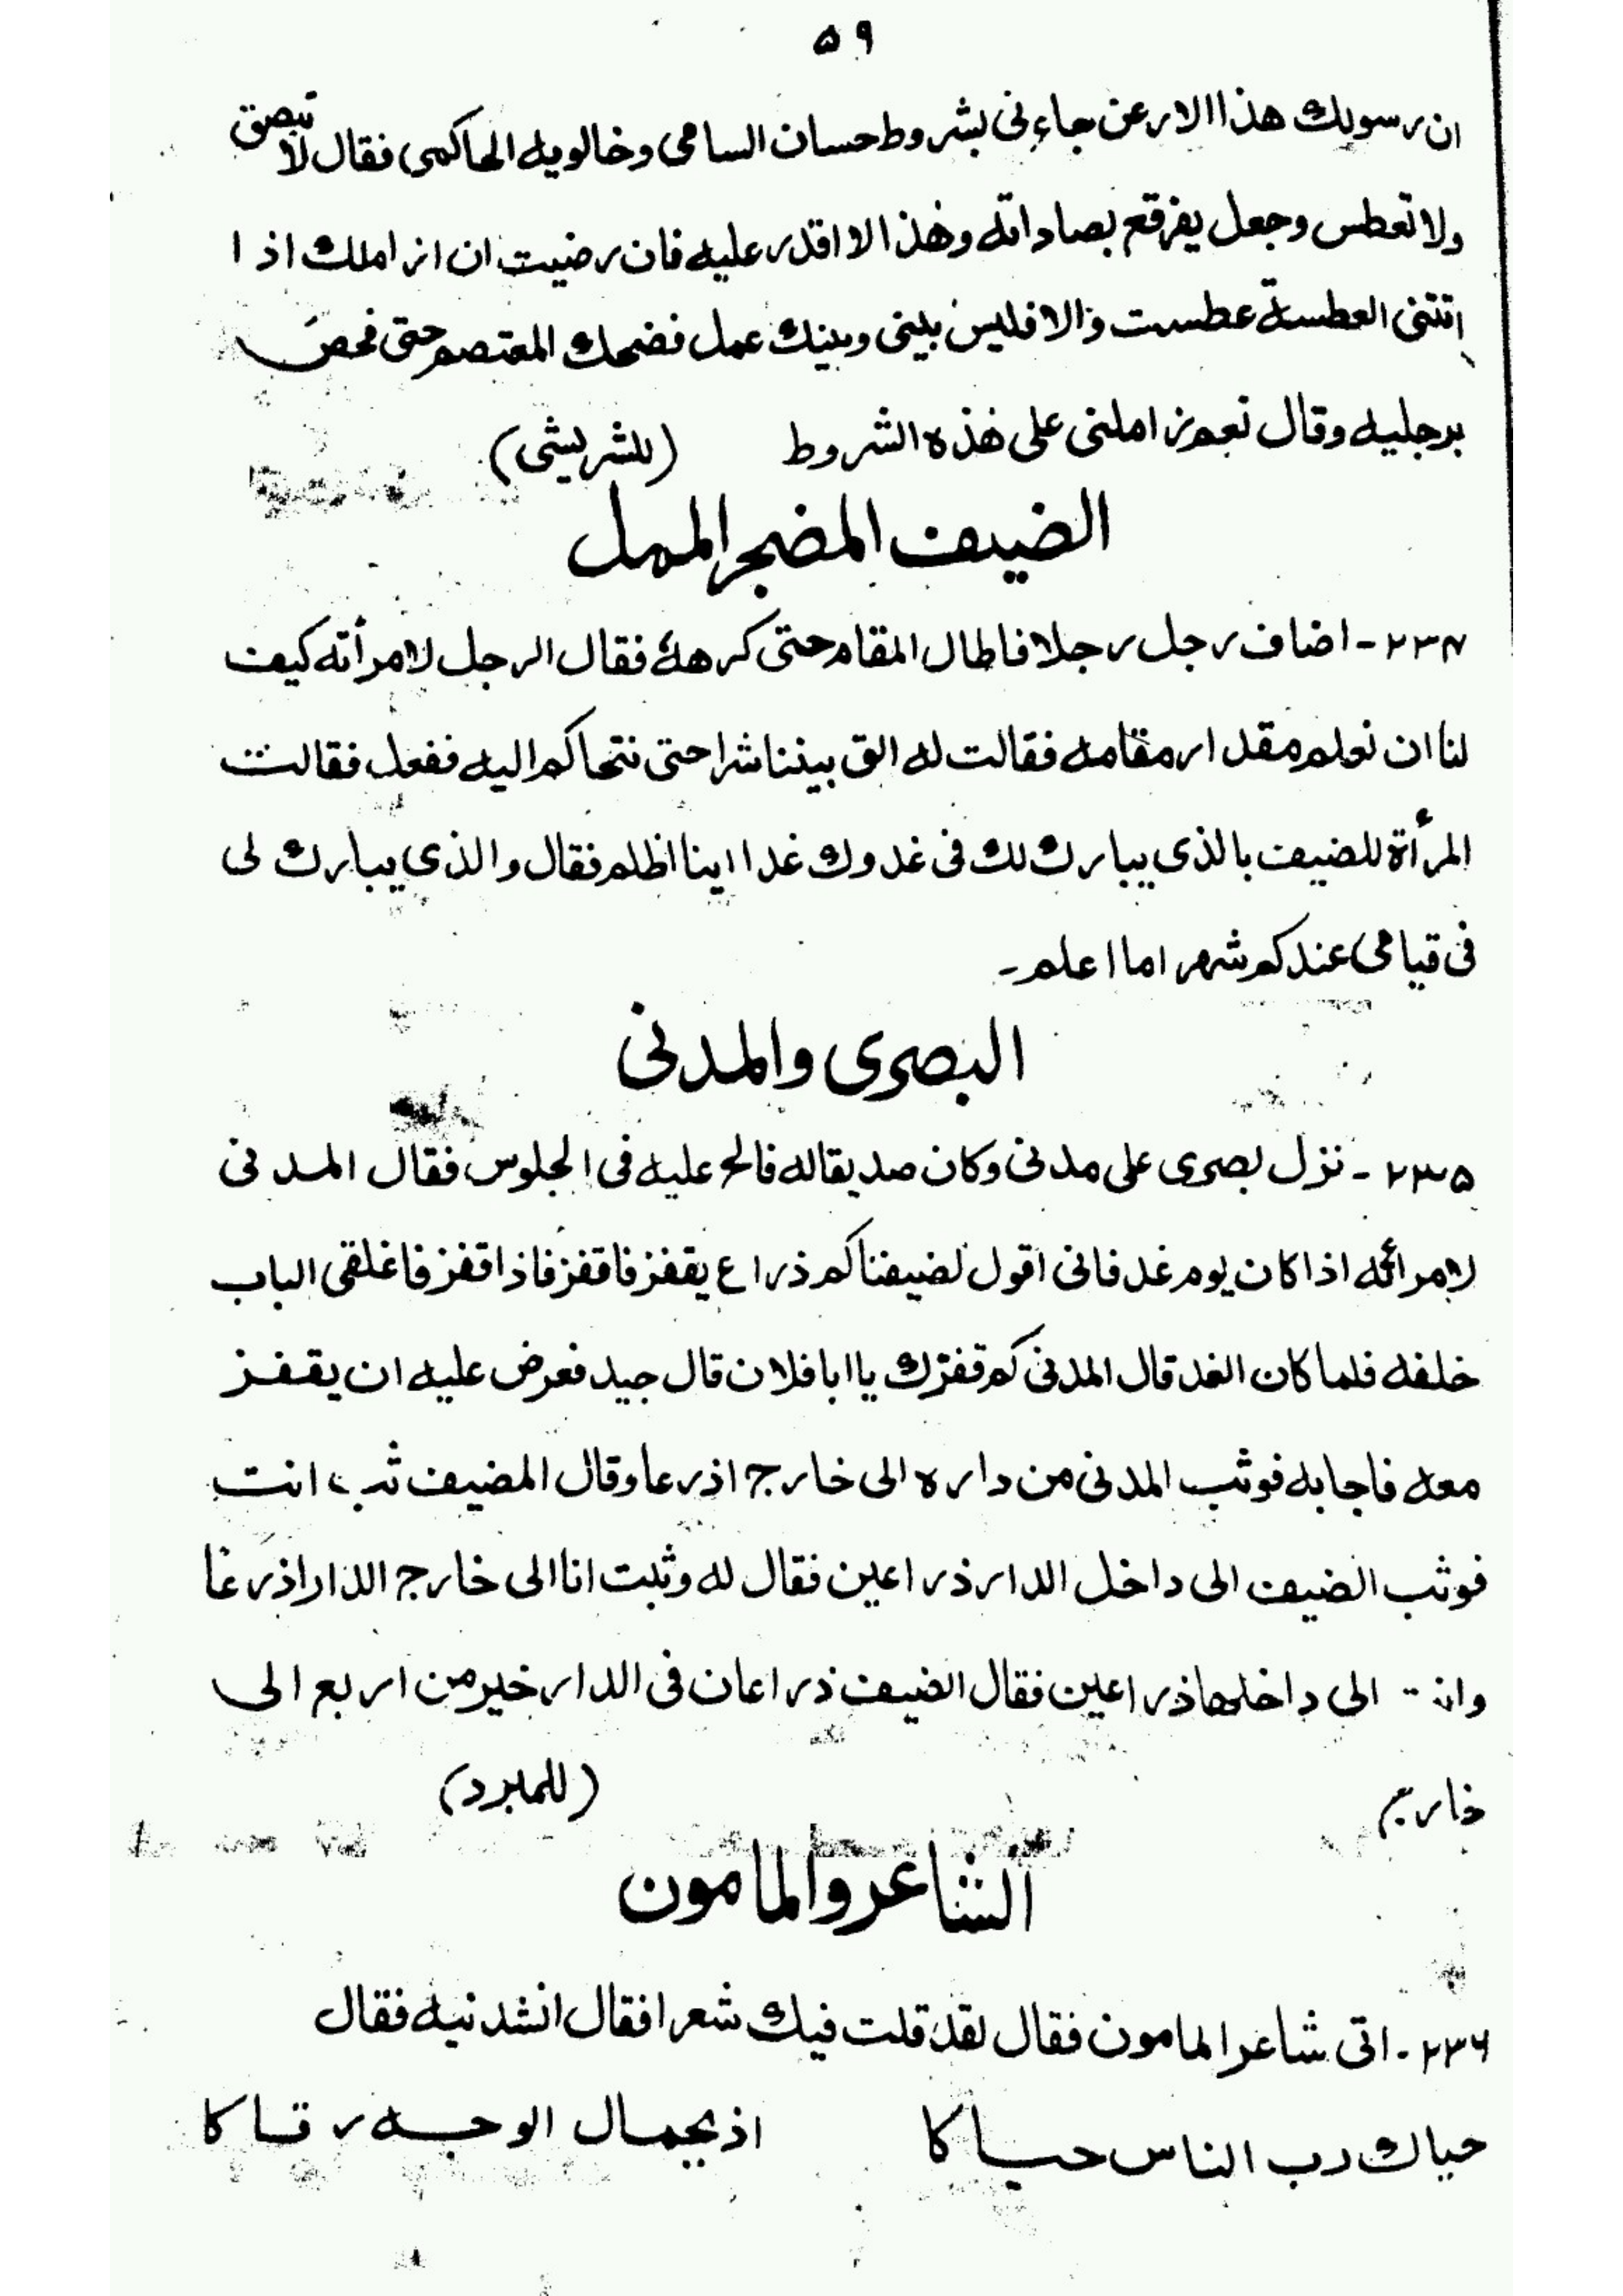 ۵۹
ان رسولك هذا الارعن جاءنی بشروط حسان السامی وخالویه الحاكمی فقال لا تبصق
ولا تعطس وجعل یفرقع بصاداته وهذا لا اقدر علیه فان رضیت ان ازاملك اذا
اتتنی العطسة عطست والا فلیس بینی وبینك عمل فضحك المعتصم حتی فحص
برجلیه وقال نعم زاملنی علی هذه الشروط (للشریشی)
الضیف المضجر الممل
۲۳۴ ـ اضاف رجل رجلا فاطال المقام حتی كرهه فقال الرجل لامرأته كیف
لنا ان نعلم مقدار مقامه فقالت له الق بیننا شرا حتی نتحاكم الیه ففعل فقالت
المرأة للضیف بالذی یبارك لك فی غدوك غدا اینا اظلم فقال والذی یبارك لی
فی قیامی عندكم شهرا ما اعلم ـ
البصری والمدنی
۲۳۵ ـ نزل بصری علی مدنی وكان صدیقا له فالح علیه فی الجلوس فقال المدنی
لامرأته اذا كان یوم غد فانی اقول لضیفنا كم ذراع یقفز فاقفز فاذا قفز فاغلقی الباب
خلفه فلما كان الغد قال المدنی كم قفزك یا ابا فلان قال جید فعرض علیه ان یقفز
معه فاجابه فوثب المدنی من داره الی خارج اذرعا وقال المضیف ثب انت
فوثب الضیف الی داخل الدار ذراعین فقال له وثبت انا الی خارج الدار اذرعا
وانت الی داخلها ذراعین فقال الضیف ذراعان فی الدار خیر من اربع الی
خارج (للمبرد)
الشاعر والمامون
۲۳۶ ـ اتی شاعر المامون فقال لقد قلت فیك شعرا فقال انشدنیه فقال
حیاك رب الناس حیاكا اذ بجمال الوجه رقاكا